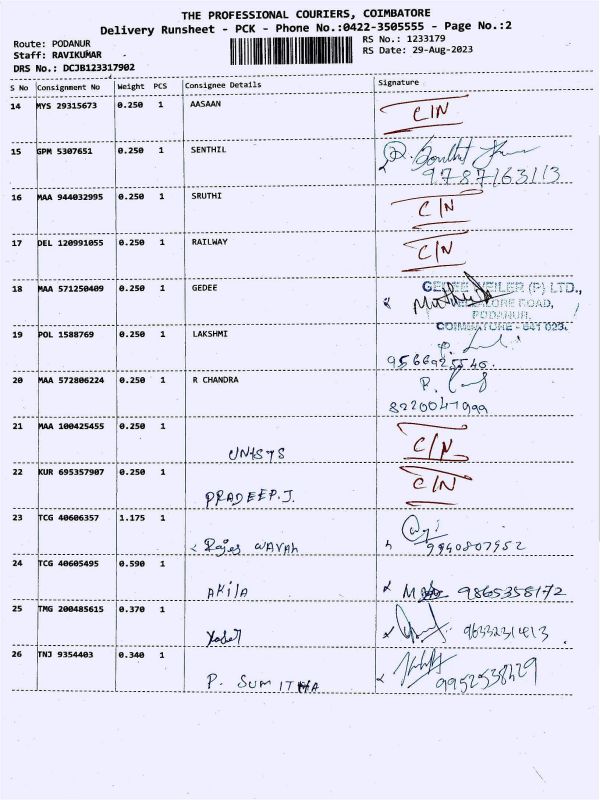 THE PROFESSIONAL COURIERS, COIMBATORE
Delivery Runsheet - PCK - Phone No.:0422-3505555 - Page No.:2
Route: PODANUR
RS No.: 1233179
Staff: RAVIKUMAR
RS Date: 29-Aug-2023
DRS No.: DCJB123317902
S No Consignment No Weight PCS Consignee Details Signature
14 MYS 29315673 0.250 1 AASAAN C/N
15 GPM 5307651 0.250 1 SENTHIL
9787163113
16 MAA 944032995 0.250 1 SRUTHI C/N
17 DEL 120991055 0.250 1 RAILWAY C/N
18 MAA 571250409 0.250 1 GEDEE GEDEE WEILER (P) LTD.,
ROAD,
PODANUR.
COIMBATORE - 641 023.
19 POL 1588769 0.250 1 LAKSHMI
9566925540
20 MAA 572806224 0.250 1 R CHANDRA
8220047999
21 MAA 100425455 0.250 1 C/N
UNISYS
22 KUR 695357907 0.250 1 C/N
PRADEEP.J.
23 TCG 40606357 1.175 1
9940807952
24 TCG 40605495 0.590 1
AKilA 9865358172
25 TMG 200485615 0.370 1
9633231413
26 TNJ 9354403 0.340 1
P. SUMITHA 9952538429